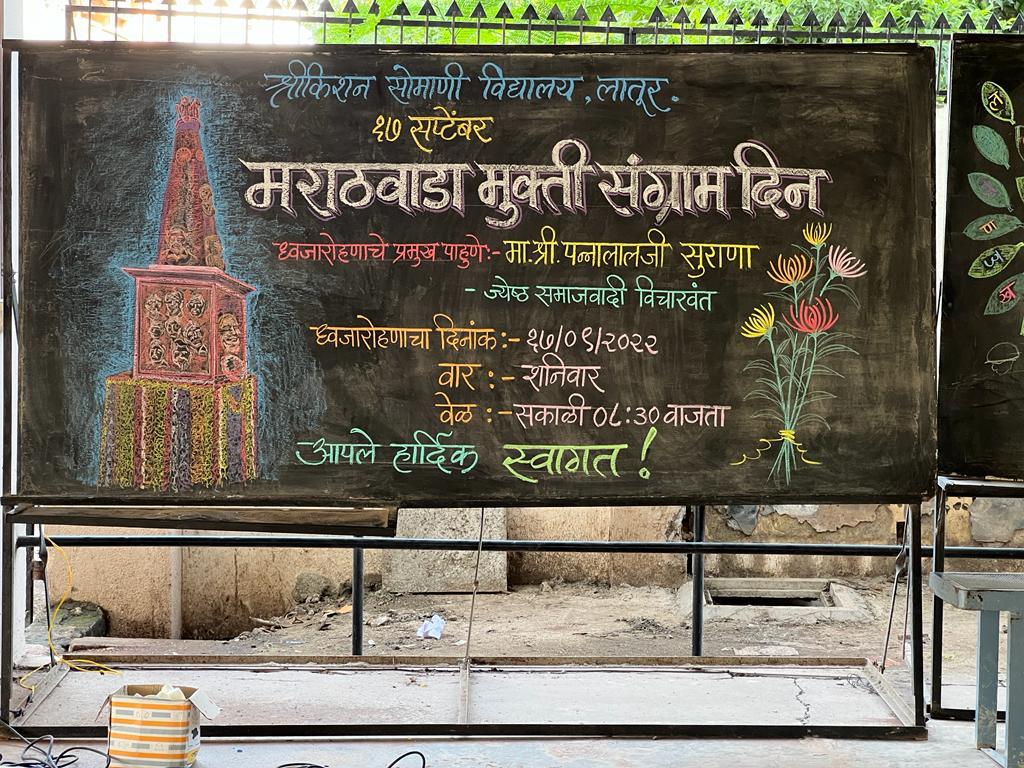 श्रीकिशन सोमाणी विद्यालय, लातूर.
१७ सप्टेंबर
मराठवाडा मुक्ती संग्राम दिन
ध्वजारोहणाचे प्रमुख पाहुणे:- मा.श्री.पन्नालालजी सुराणा
- ज्येष्ठ समाजवादी विचारवंत
ध्वजारोहणाचा दिनांक:- १७/०९/२०२२
वार :- शनिवार
वेळ :- सकाळी ०८:३० वाजता
आपले हार्दिक स्वागत!